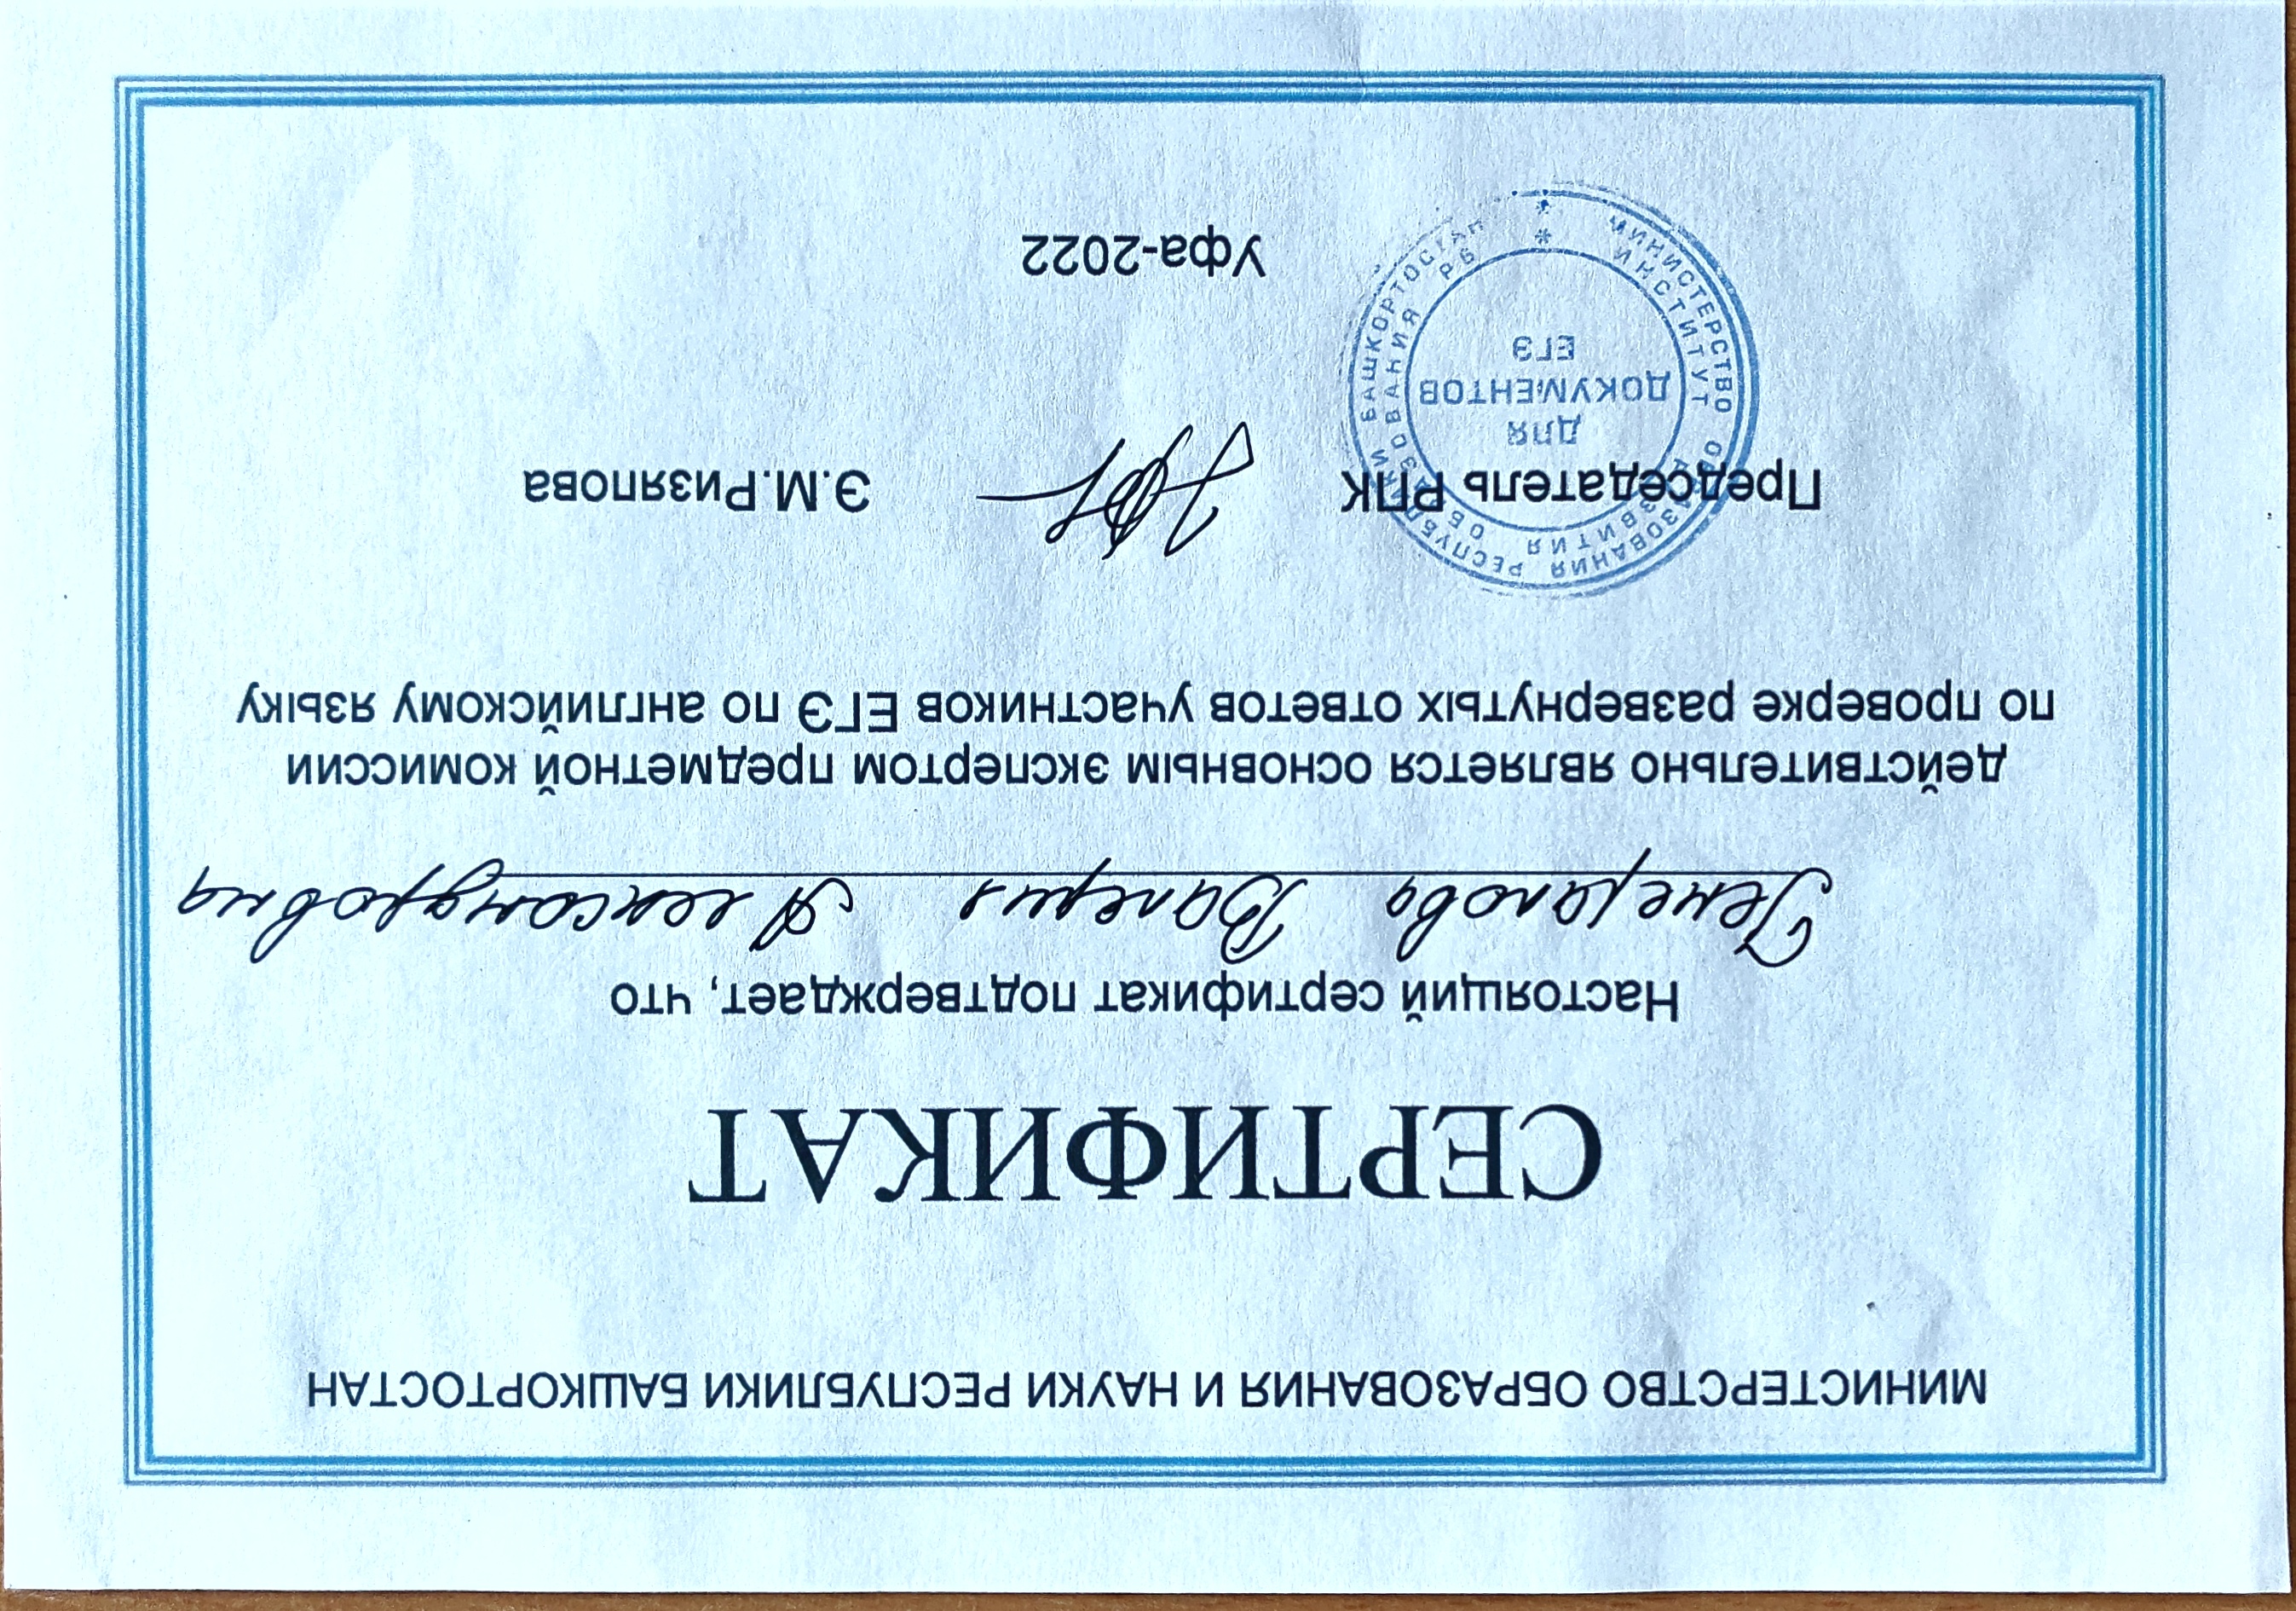 МИНИСТЕРСТВО ОБРАЗОВАНИЯ И НАУКИ РЕСПУБЛИКИ БАШКОРТОСТАН
СЕРТИФИКАТ
Настоящий сертификат подтверждает, что
Генералова Валерия Александровна
действительно является основным экспертом предметной комиссии
по проверке развернутых ответов участников ЕГЭ по английскому языку
Председатель РПК Э.М.Ризяпова
МИНИСТЕРСТВО ОБРАЗОВАНИЯ РЕСПУБЛИКИ БАШКОРТОСТАН
ИНСТИТУТ РАЗВИТИЯ ОБРАЗОВАНИЯ РБ
ДЛЯ
ДОКУМЕНТОВ
ЕГЭ
Уфа-2022